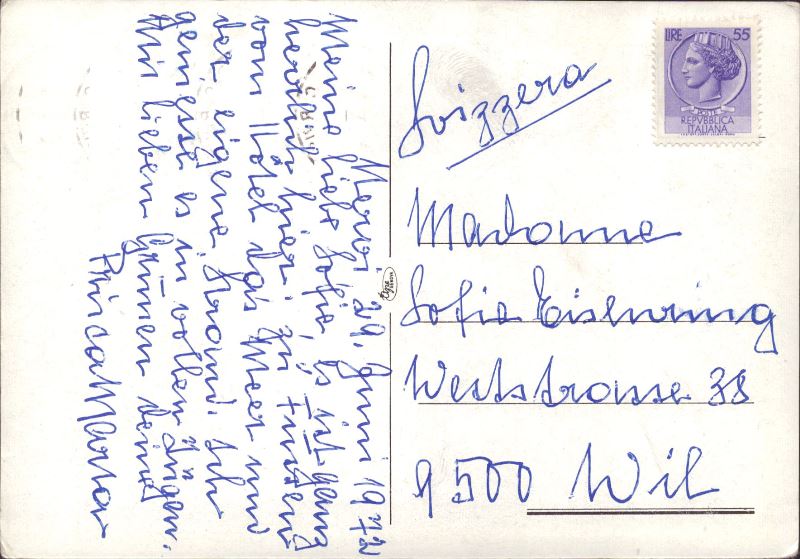 Nervi 29. Juni 1972
Meine liebe Sofie, es ist ganz
herrlich hier. zu Füssen
vom Hôtel das Meer und
der eigene Strand. Ich
geniesse es in vollen Zügen.
Mit lieben Grüssen Deine
LIRE 55
POSTE
REPVBBLICA
ITALIANA
Svizzera
Madame
Sofie Eisenring
Weststrasse 38
9500 Wil